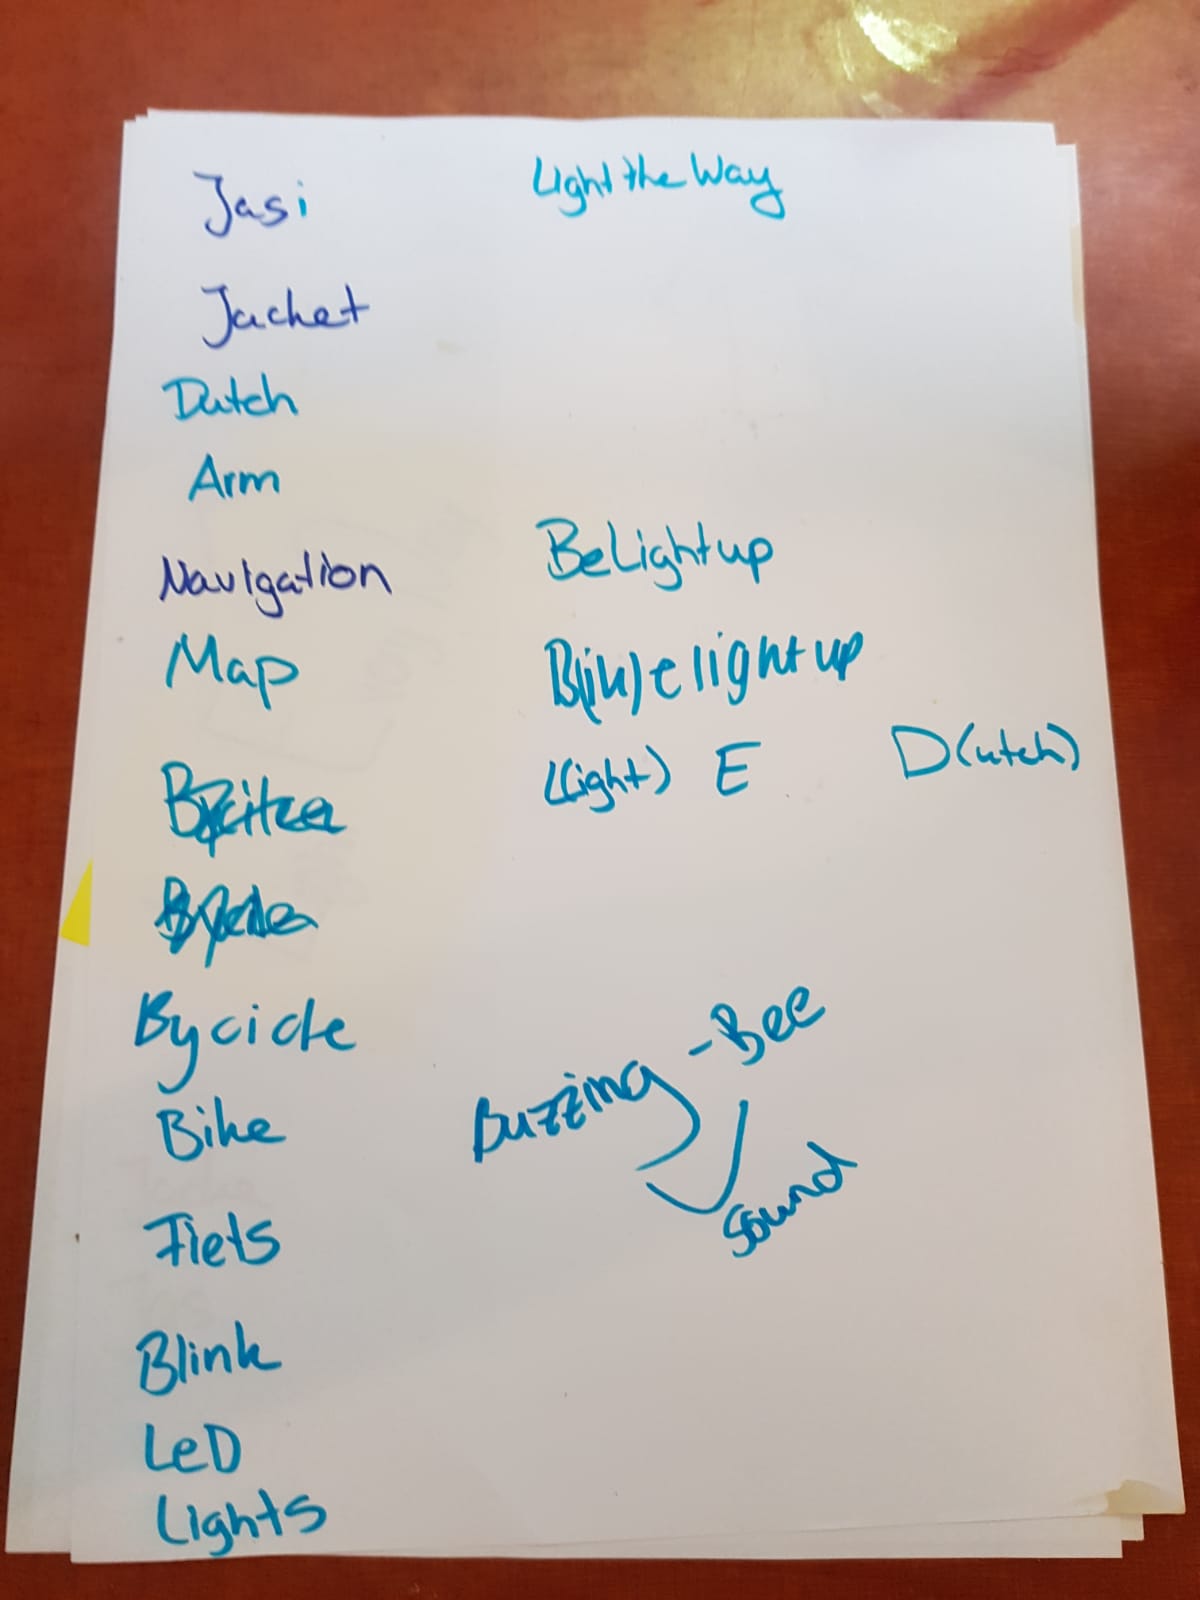 Jasi
Jachet
Dutch
Arm
Navigation
Map
Bycicle
Bike
Fiets
Blink
LeD
Lights
Light the Way
BeLight up
B(ik)e light up
L(ight) E D(utch)
Buzzing - Bee
Sound